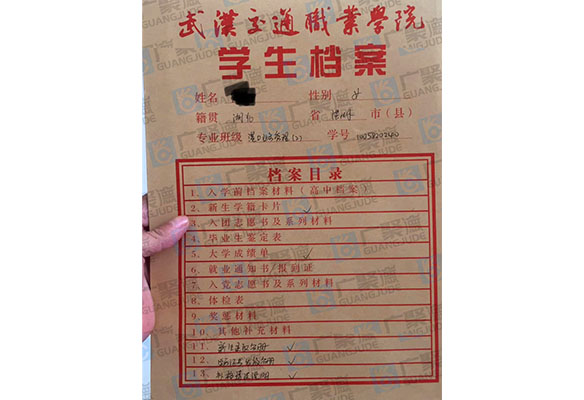 武漢交通職業學院
学生档案
姓名 性别 女
籍贯 湖北 省 市（县）
专业班级 学号
档案目录
1、入学前档案材料（高中档案）
2、新生学籍卡片 ✓
3、入团志愿书及系列材料
4、毕业生鉴定表
5、大学成绩单 ✓
6、就业通知书/报到证
7、入党志愿书及系列材料
8、体检表
9、奖惩材料
10、其他补充材料
11、 ✓
12、 ✓
13、 ✓
广聚德
GUANGJUDE